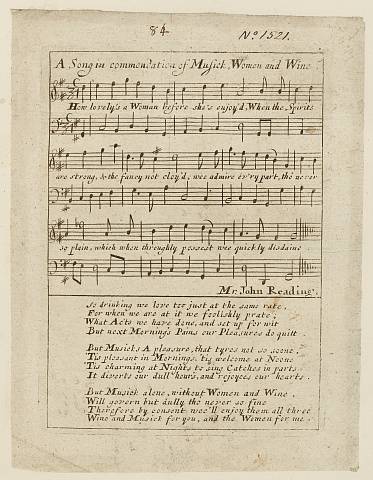 84
No. 1521.
A Song in commendation of Musick, Women and Wine
How lovely's a Woman before she's enjoy'd, When the Spirits
are strong, & the fancy not cloy'd, wee admire ev'ry part, tho never
so plain, which when throughly possest wee quickly disdaine.
Mr. John Reading.
So drinking we love too just at the same rate.
For when we are at it we foolishly prate;
What Acts we have done, and set up for wit
But next Mornings Pains our Pleasures do quitt.
But Musick's A pleasure, that tyres not so soone.
Tis pleasant in Mornings, tis welcome at Noone
Tis charming at Nights to sing Catches in parts
It diverts our dull hours, and rejoyces our hearts.
But Musick alone, without Women and Wine.
Will govern but dully tho never so fine
Therefore by consent wee'll enjoy them all three
Wine and Musick for you, and the Women for me.